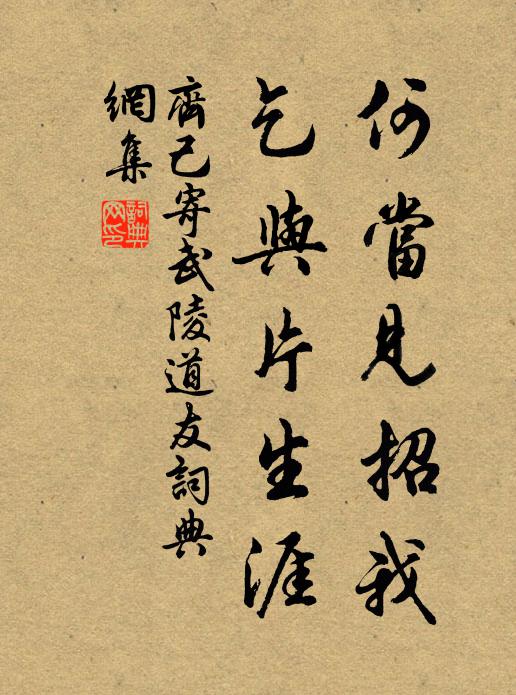 何當見招我
乞與片生涯
齊己寄武陵道友詞典
網集
詞典
網印